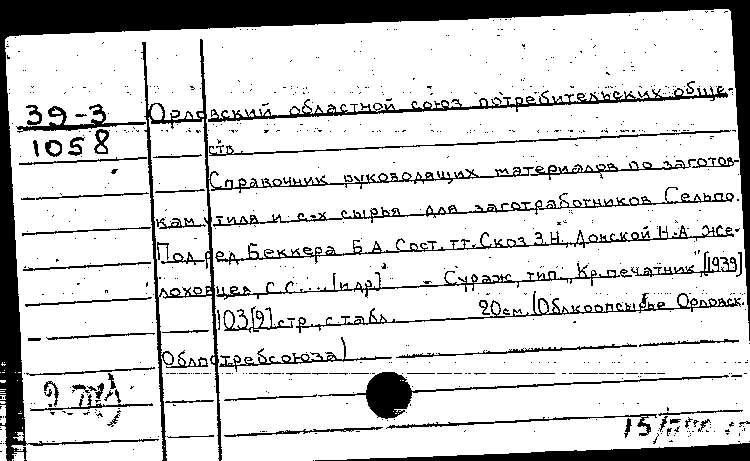 39-3
1058
Орловский областной союз потребительских обще-
ств.
Справочник руководящих материалов по заготов-
кам утиля и с-х сырья для заготработников Сельпо.
Под ред. Беккера Б.А. Сост. тт. Скоз З.Н., Донской Н.А., Же-
лоховцев, С.С. ... [и др.] - Сураж, тип. "Кр. печатник" [1939]
103[2] стр., с табл. 20см. (Облкоопсырье Орловск.
Облпотребсоюза)
15/